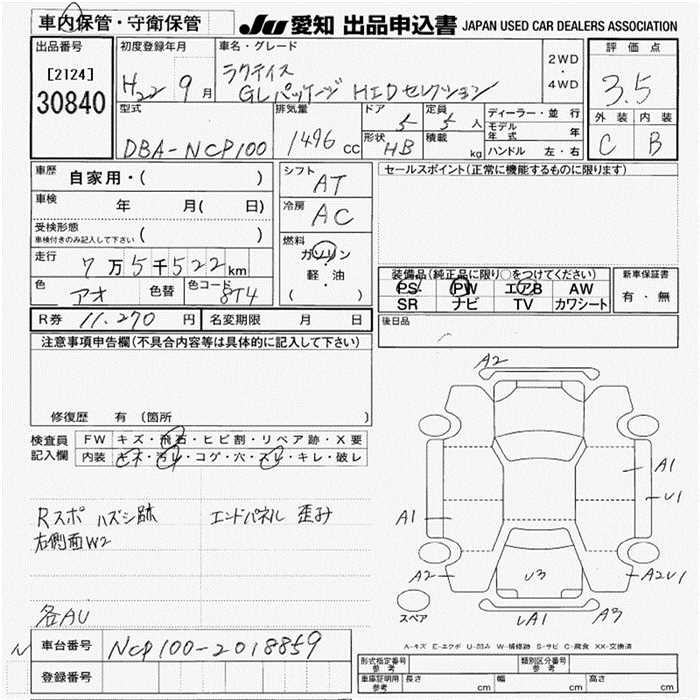 車内保管・守衛保管
JU 愛知 出品申込書 JAPAN USED CAR DEALERS ASSOCIATION
出品番号
[2124]
30840
初度登録年月
H22 9月
車名・グレード
ラクティス
GLパッケージ HIDセレクション
2WD
・
4WD
評価点
3.5
外装 内装
C B
型式
DBA-NCP100
排気量
1496 cc
ドア
5
形状
HB
定員
5人
積載
kg
ディーラー・並行
モデル年式 年
ハンドル 左・右
車歴 自家用・( )
車検 年 月( 日)
受検形態
車検付きのみ記入して下さい ( )
走行 7万5千522km
色 アオ 色替 色コード 8T4
シフト
AT
冷房
AC
燃料
ガソリン
軽・油
( )
セールスポイント(正常に機能するものに限ります)
装備品(純正品に限り○をつけてください)
PS PW エアB AW
SR ナビ TV カワシート
新車保証書
有・無
R券 11.270 円 名変期限 月 日
後日品
注意事項申告欄(不具合内容等は具体的に記入して下さい)
修復歴 有 (箇所
検査員
記入欄
FW キズ・飛石・ヒビ割・リペア跡・X要
内装 キズ・汚レ・コゲ・穴・スレ・キレ・破レ
Rスポ ハズシ跡 エンドパネル 歪み
右側面W2
各AU
A2
A1
U1
A1
A2
U3
A2U1
LA1
A3
スペア
A-キズ E-エクボ U-凹み W-補修跡 S-サビ C-腐食 XX-交換済
N
車台番号 NCP100-2018859
登録番号
型式指定番号
参考
類別区分番号
参考
車庫証明用
参考
長さ cm 幅 cm 高さ cm